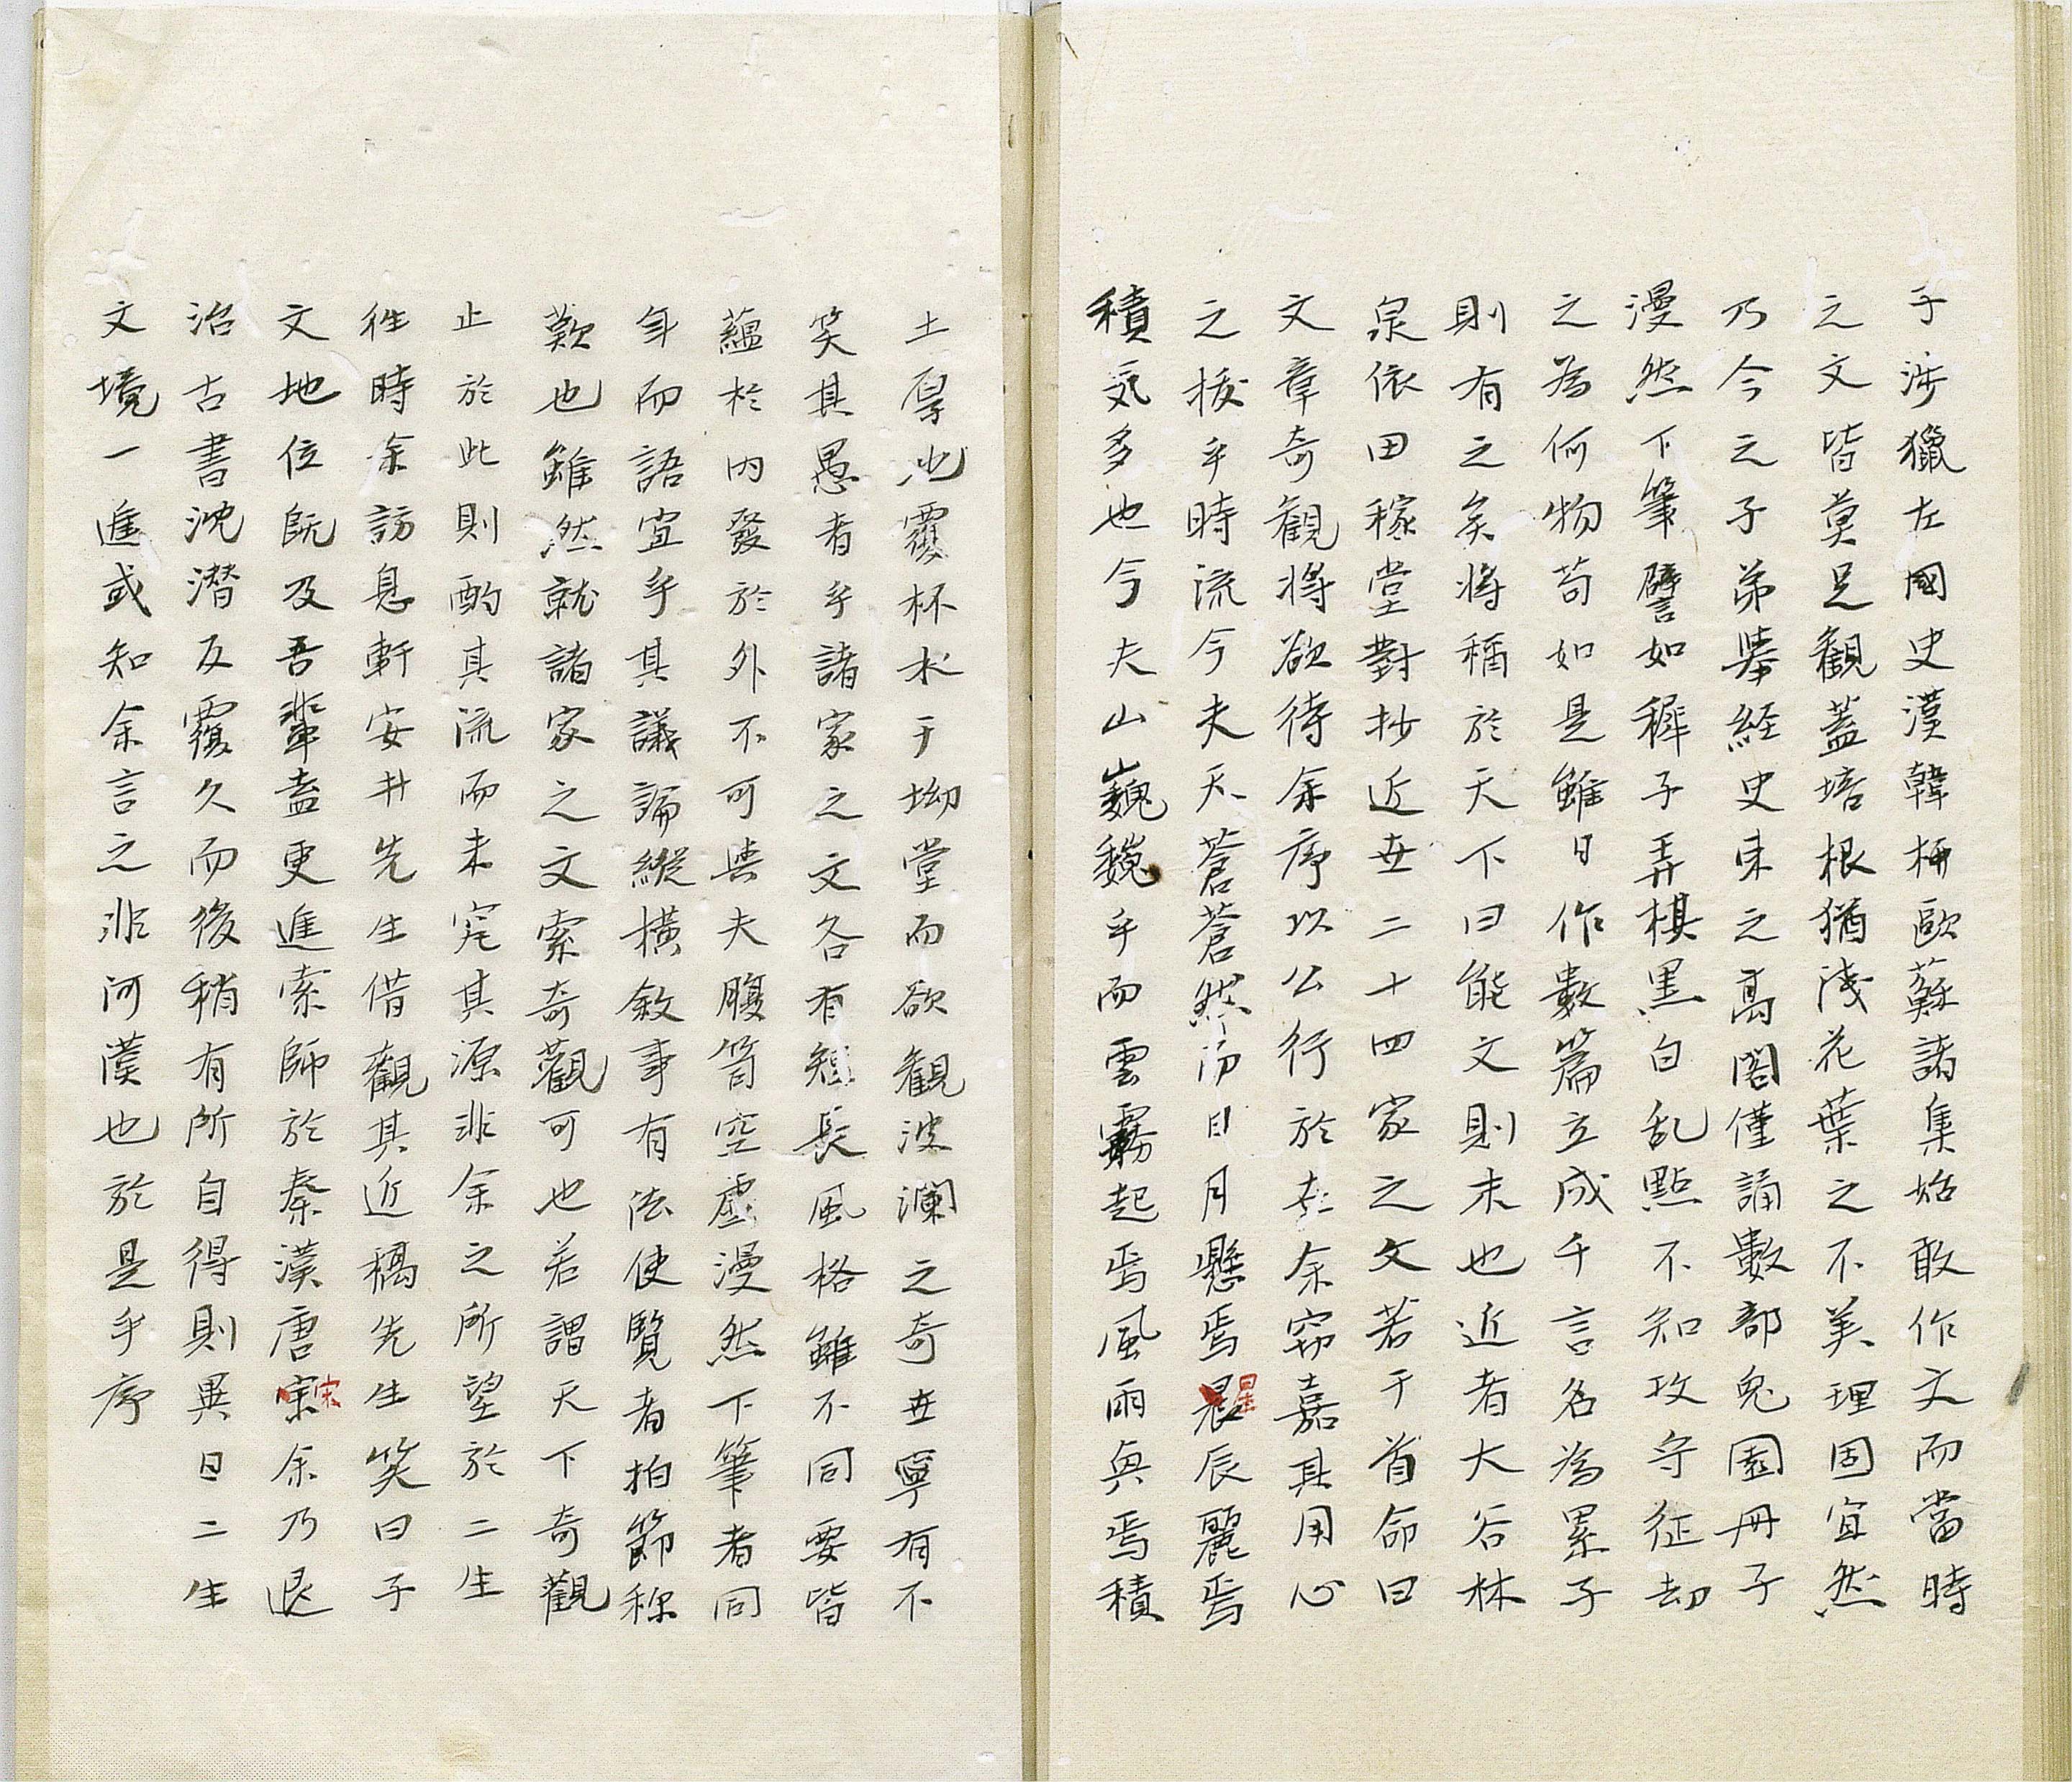 子涉獵左國史漢韓柳歐蘇諸集始敢作文而當時
之文皆莫足觀蓋培根猶淺花葉之不美理固宜然
乃今之子弟舉経史束之高閣僅誦數部兔園冊子
漫然下筆譬如稺子弄棋黒白乱點不知攻守征劫
之為何物苟如是雖日作數篇立成千言名為累子
則有之矣将稱於天下曰能文則未也近者大谷林
泉依田稼堂對抄近世二十四家之文若干首命曰
文章奇觀将欲待余序以公行於世余窃嘉其用心
之拔乎時流今夫天蒼蒼然而日月懸焉星辰麗焉
積気多也今夫山巍巍乎而雲霧起焉風雨興焉積
土厚也覆杯水于坳堂而欲觀波瀾之奇世寧有不
笑其愚者乎諸家之文各有短長風格雖不同要皆
蘊於内發於外不可與夫腹笥空虛漫然下筆者同
年而語宜乎其議論縦横敘事有法使覽者拍節稱
歎也雖然就諸家之文索奇觀可也若謂天下奇觀
止於此則酌其流而未究其源非余之所望於二生
徃時余訪息軒安井先生借觀其近稿先生笑曰子
文地位既及吾輩盍更進索師於秦漢唐宋余乃退
治古書沈潜反覆久而後稍有所自得則異日二生
文境一進或知余言之非河漢也於是乎序